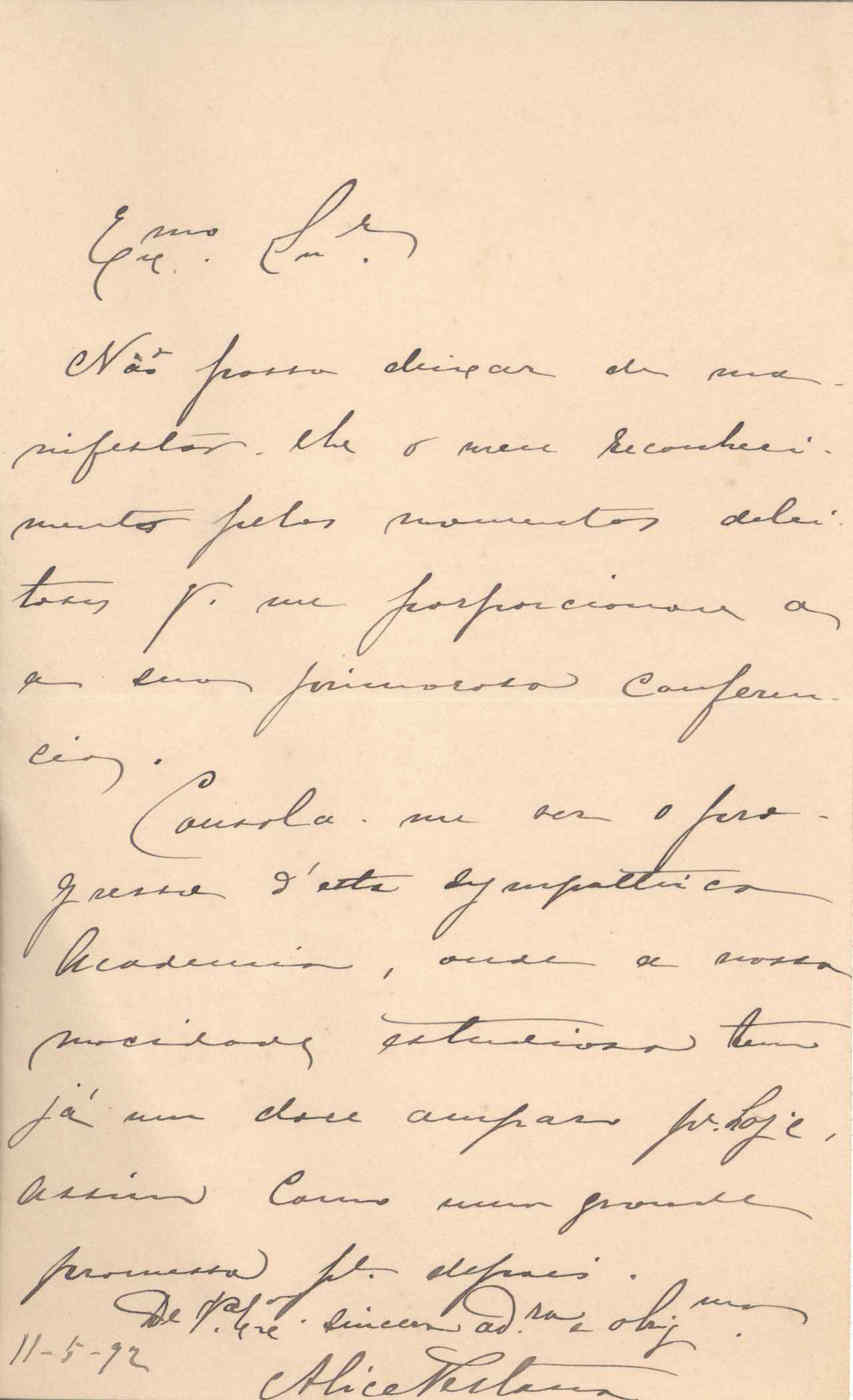 Exmo. Snr.
Não posso deixar de ma-
nifestar-lhe o meu reconheci-
mento pelos momentos delei-
tosos q. me porporcionou a
a sua primorosa conferen-
cia.
Consola-me ver o pro-
gresso d'esta sympathica
Academia, onde a nossa
mocidade estudiosa tem
já um doce amparo pa. hoje,
assim como uma grande
promessa pa. depois.
De V. Exa. sincera ad.ra e obrigma.
11-5-92
Alice Pestana